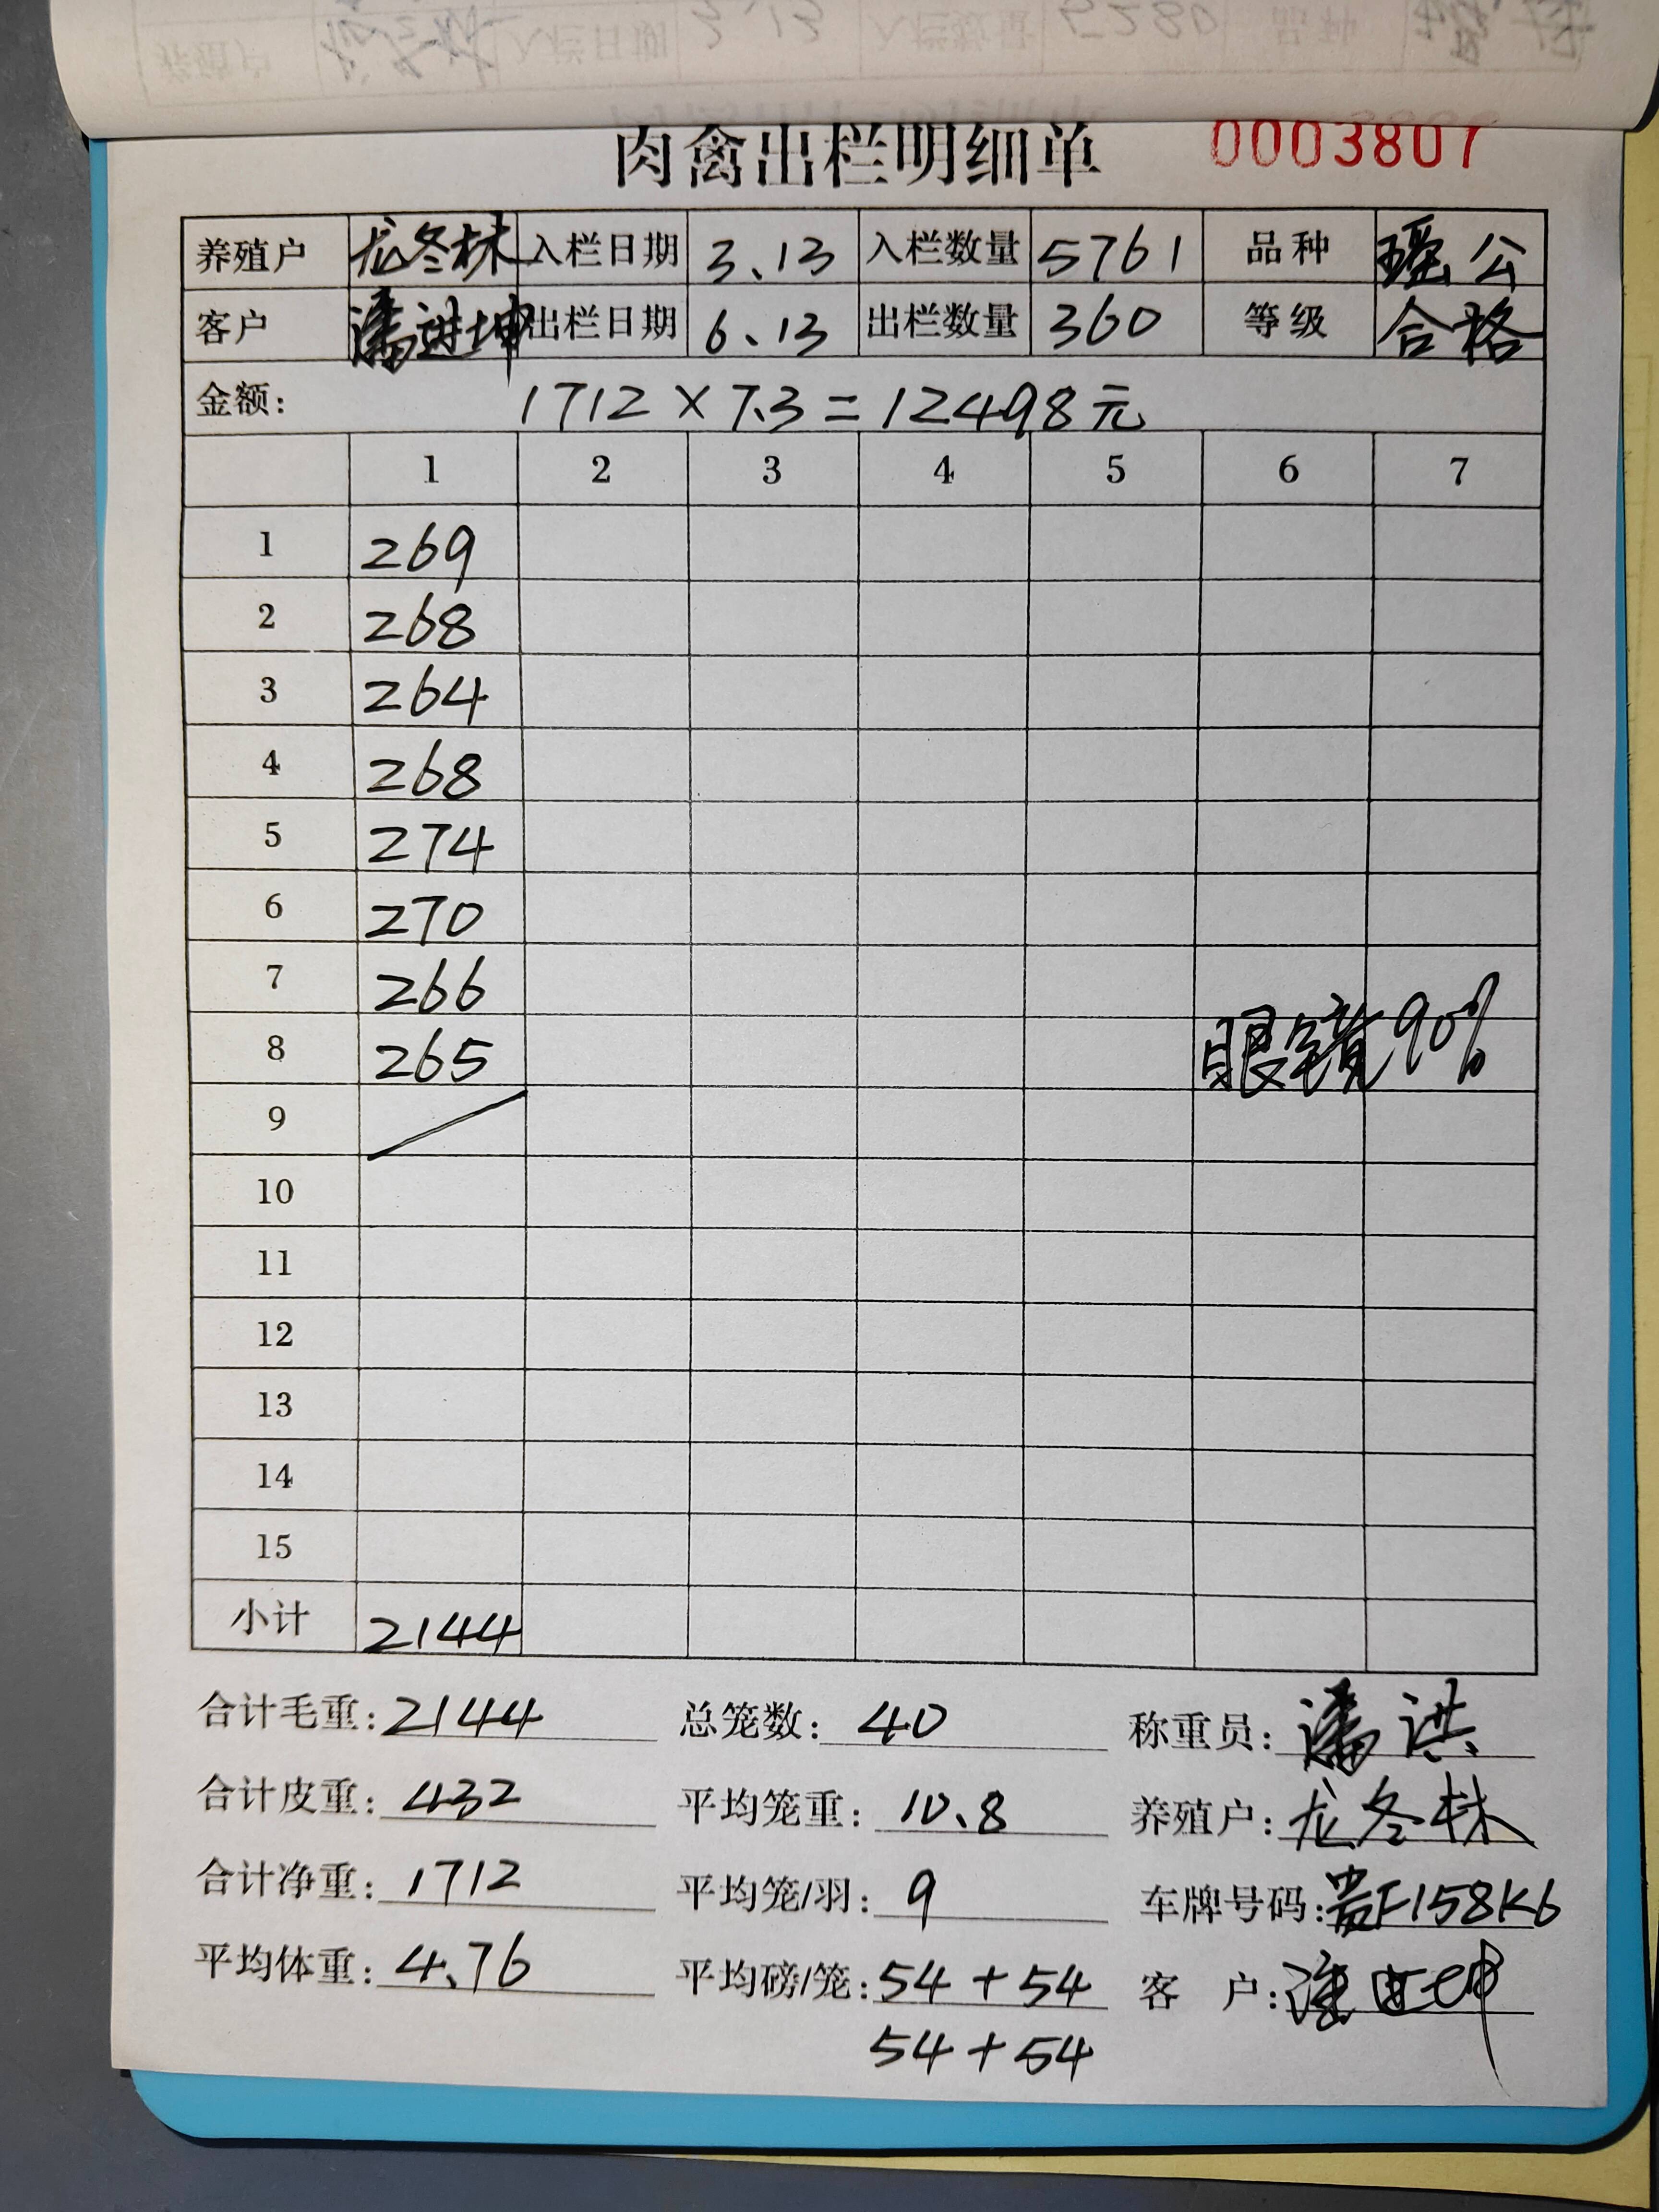 肉禽出栏明细单 0003807
养殖户 龙冬林 入栏日期 3、13 入栏数量 5761 品种 瑶公
客户 潘进坤 出栏日期 6、13 出栏数量 360 等级 合格
金额: 1712×7.3=12498元
1 2 3 4 5 6 7
1 269
2 268
3 264
4 268
5 274
6 270
7 266
8 265 眼镜90%
9
10
11
12
13
14
15
小计 2144
合计毛重: 2144 总笼数: 40 称重员: 潘洪
合计皮重: 432 平均笼重: 10、8 养殖户: 龙冬林
合计净重: 1712 平均笼/羽: 9 车牌号码: 贵F158K6
平均体重: 4、76 平均磅/笼: 54+54 客 户:
54+54